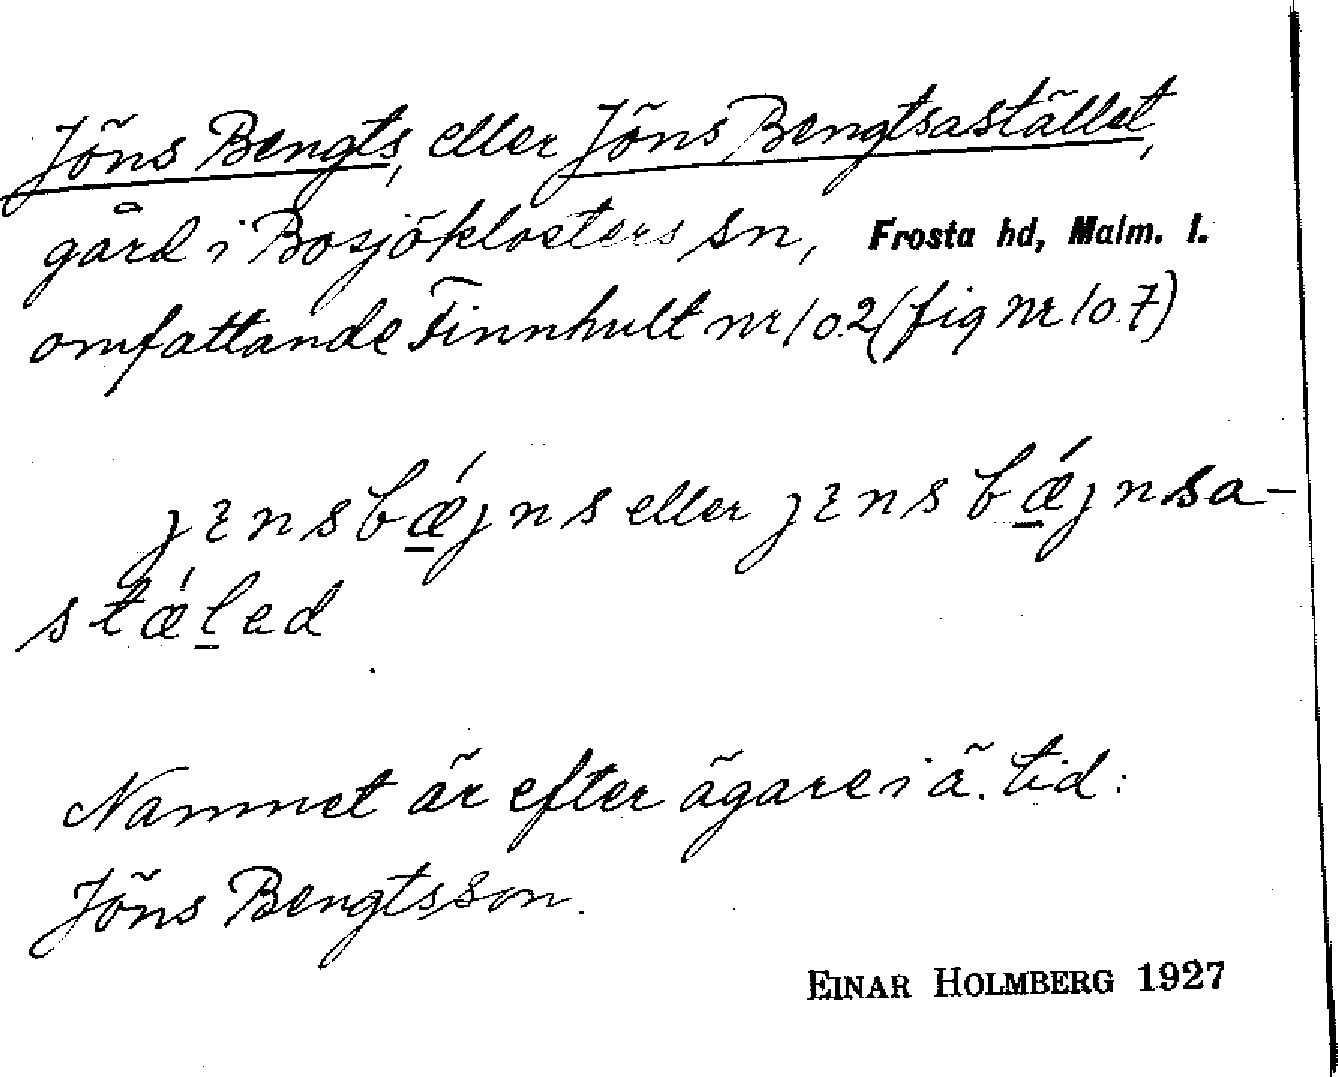 Jöns Bengts, eller Jöns Bengtsastället,
gård i Bosjöklosters sn, Frosta hd, Malm. l.
omfattande Finnhult nr 10.2 (fig nr 10.7)
jɛnsbǽjns eller jɛnsbǽjnsa-
stǽləd
Namnet är efter ägare i ä. tid:
Jöns Bengtsson.
EINAR HOLMBERG 1927